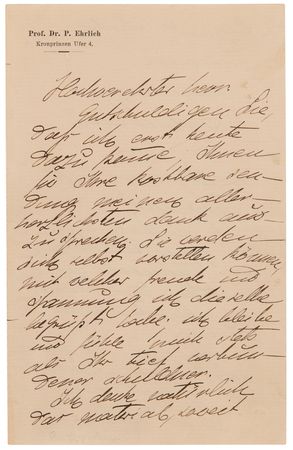 Prof. Dr. P. Ehrlich
Kronprinzen Ufer 4.
Hochverehrter Herr.
Entschuldigen Sie,
daß ich erst heute
dazu komme, Ihnen
für Ihre kostbare Sen-
dung meinen aller-
herzlichsten Dank aus-
zusprechen. Sie werden
sich selbst vorstellen können
mit welcher Freude und
Spannung ich dieselbe
begrüßt habe. ich bleibe
und fühle mich stets
als Ihr tief verbun-
dener Schuldner.
Ich denke natürlich
das Material, soweit